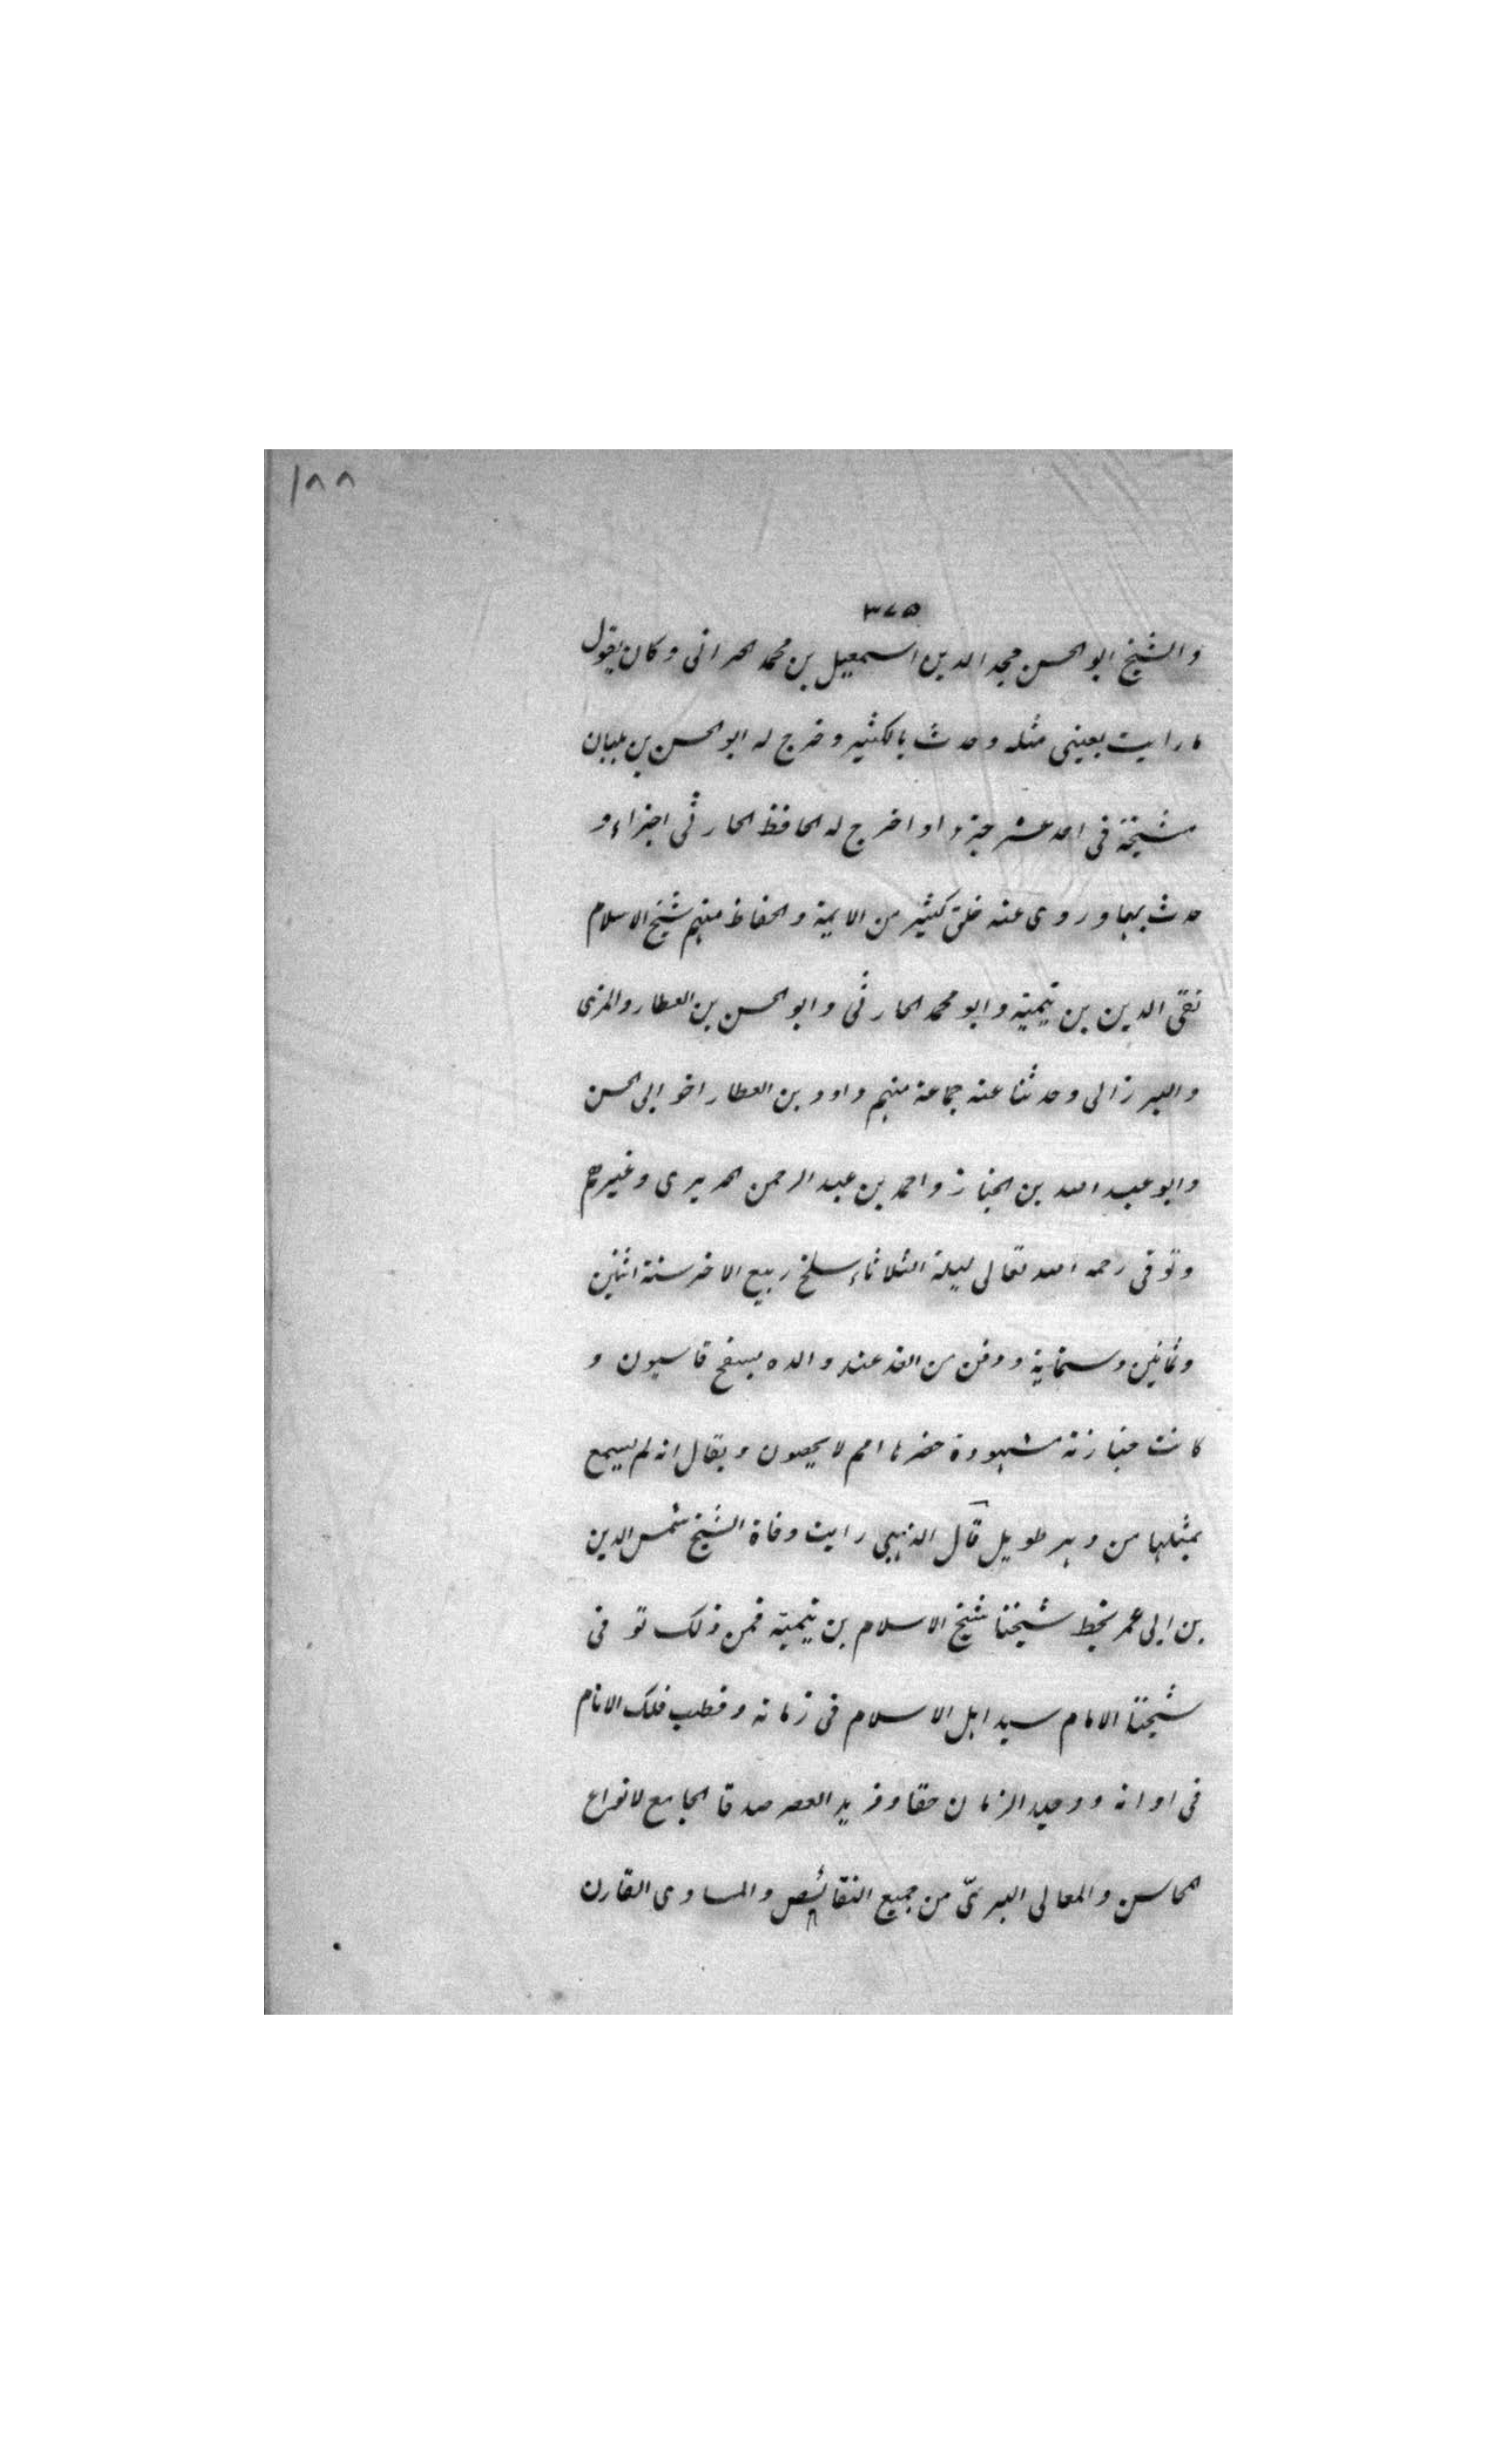 ١٨٨
٣٧٥
والشيخ ابو الحسن مجد الدين اسمعيل بن محمد الحرانى وكان يقول
ما رايت بعينى مثله وحدث بالكثير وخرج له ابو الحسن بن بلبان
مشيخة فى احد عشر جزءا واخرج له الحافظ الحارثى اجزاء و
حدث بها وروى عنه خلق كثير من الايمة والحفاظ منهم شيخ الاسلام
تقى الدين بن تيمية وابو محمد الحارثى وابو الحسن بن العطار والمزى
والبرزالى وحدثنا عنه جماعة منهم داود بن العطار اخو ابى الحسن
وابو عبد الله بن الخباز واحمد بن عبد الرحمن الحريرى وغيرهم
وتوفى رحمه الله تعالى ليلة الثلاثاء سلخ ربيع الاخر سنة اثنين
وثمانين وستماية ودفن من الغد عند والده بسفح قاسيون و
كانت جنازته مشهودة حضرها امم لا يحصون ويقال انه لم يسمع
بمثلها من دهر طويل قال الذهبى رايت وفاة الشيخ شمس الدين
بن ابى عمر بخط شيخنا شيخ الاسلام بن تيمية فمن ذلك توفى
شيخنا الامام سيد اهل الاسلام فى زمانه وقطب فلك الانام
فى اوانه ووحيد الزمان حقا وفريد العصر صدقا الجامع لانواع
المحاسن والمعالى البرىّ من جميع النقائص والمساوى القارن